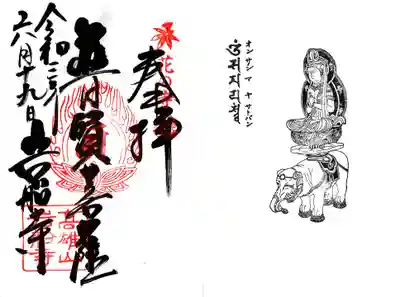 オンサンマ ヤ サトバン
奉拝
普賢菩薩
令和
六月十九日
岩船寺
高雄山
岩船寺